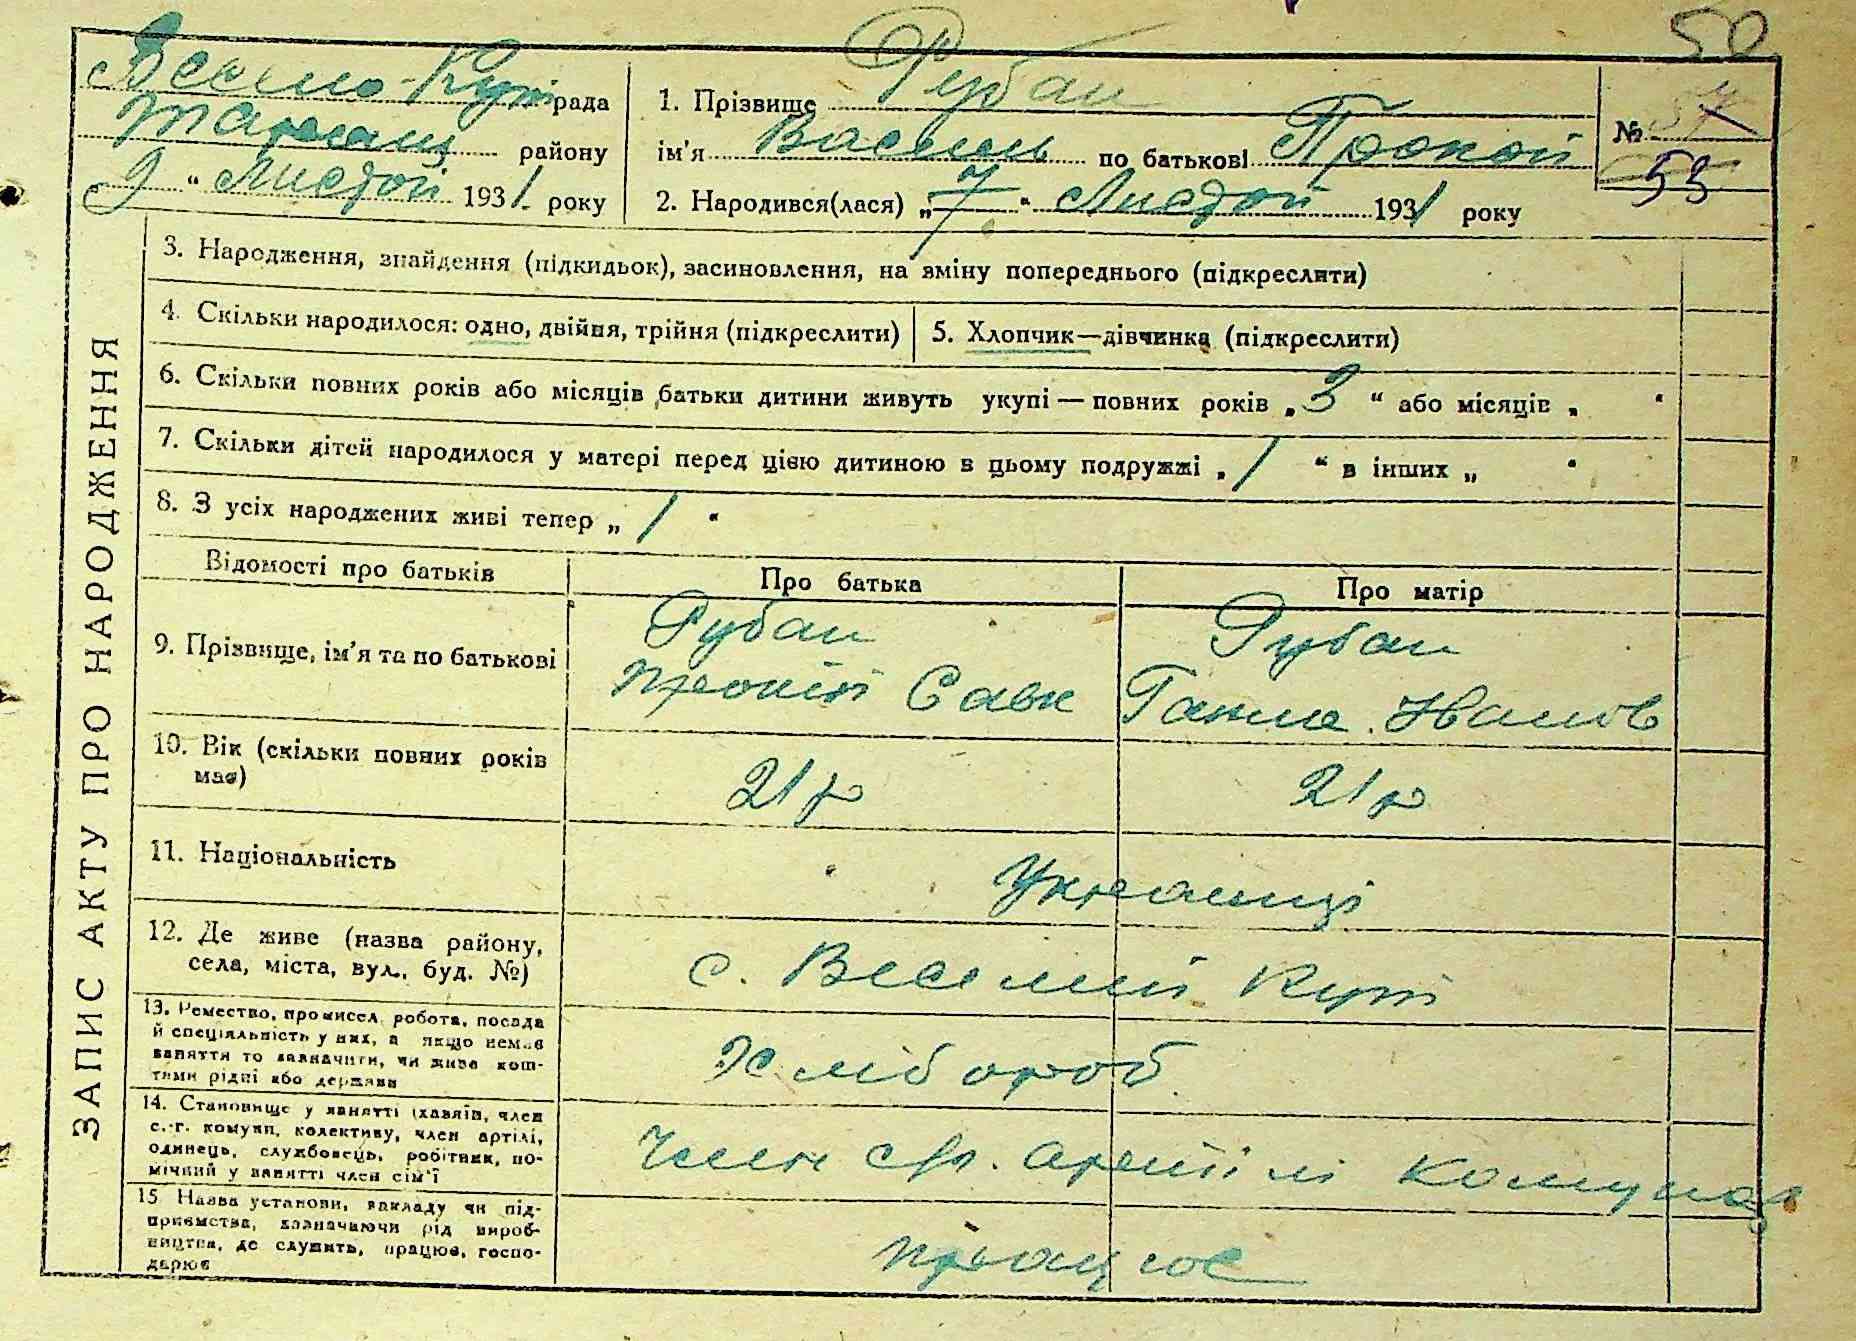 50
Весело-Кутів рада
Таращ району
"9" Листоп 1931 року
1. Прізвище Рубан
ім'я Василь по батькові Прокоп
2. Народився(лася) „7" Листоп 1931 року
№ 57
53
ЗАПИС АКТУ ПРО НАРОДЖЕННЯ
3. Народження, знайдення (підкидьок), засиновлення, на зміну попереднього (підкреслити)
4. Скільки народилося: одно, двійня, трійня (підкреслити)
5. Хлопчик—дівчинка (підкреслити)
6. Скільки повних років або місяців батьки дитини живуть укупі — повних років „3" або місяців „ "
7. Скільки дітей народилося у матері перед цією дитиною в цьому подружжі „1" в інших „ "
8. З усіх народжених живі тепер „1"
Відомості про батьків
Про батька
Про матір
9. Прізвище, ім'я та по батькові
Рубан
Прокіп Савк
Рубан
Ганна Іванов
10. Вік (скільки повних років
має)
21 р
21 р
11. Національність
Українці
12. Де живе (назва району,
села, міста, вул., буд. №)
с. Веселий Кут
13. Ремество, промисел, робота, посада
й спеціяльність у них, а якщо немає
заняття то зазначити, чи живе кош-
тами рідні або держави
Хлібороб
14. Становище у занятті (хазяїв, член
с.-г. комуни, колективу, член артілі,
одинець, службовець, робітник, по-
мічний у занятті член сім'ї
Член с/г. артілі Комунар
15 Назва установи, закладу чи під-
приємства, зазначаючи рід вироб-
ництва, де служить, працює, госпо-
дарює
працює